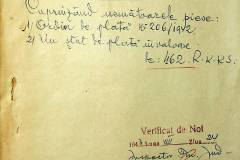 Cuprinzând următoarele piese:
1) Ordin de plată No 206/1942
2) Un stat de plată în valoare
de: 462. R.K.K.S.
Verificat de Noi
194 Luna VII Ziua 24
Inspector